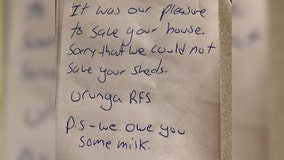 It was our pleasure
to save your house.
Sorry that we could not
save your sheds.
Urunga RFS
P.S - we owe you
some milk.